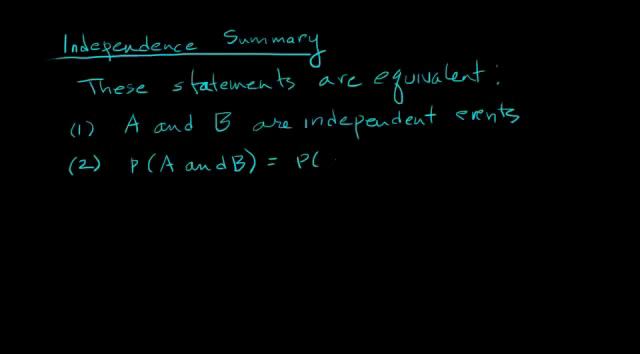 Independence Summary
These statements are equivalent:
(1) A and B are independent events
(2) P(A and B) = P(